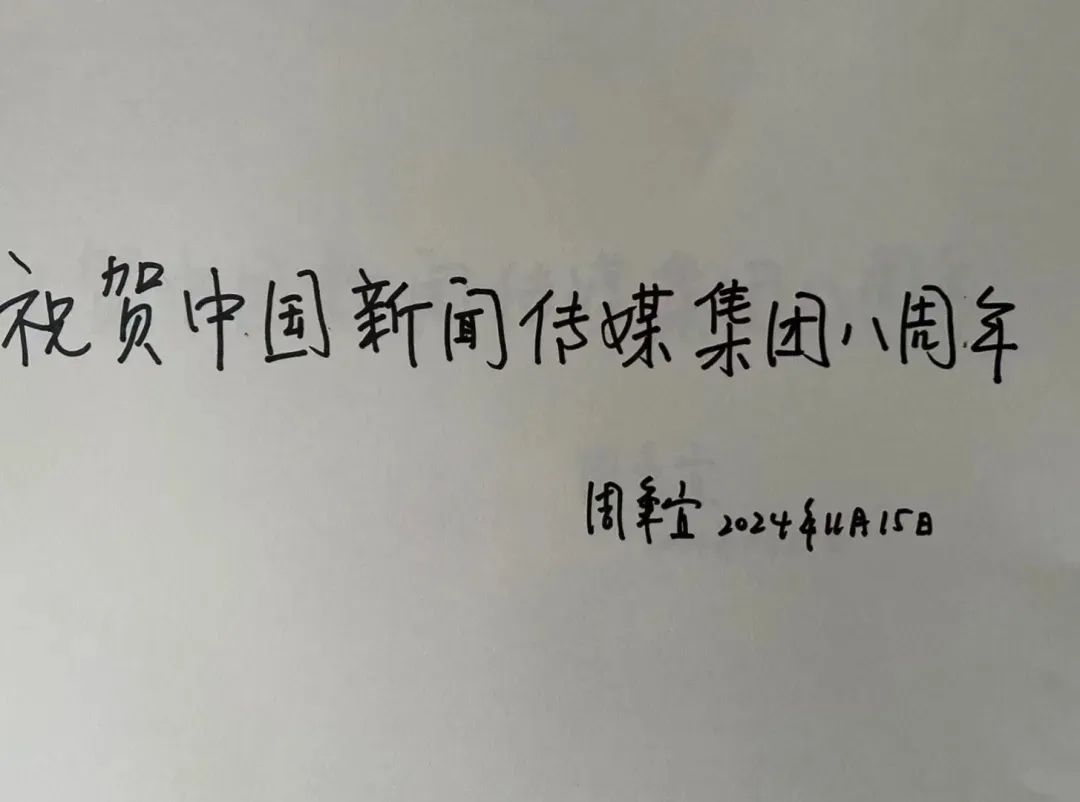 祝贺中国新闻传媒集团八周年
周秉宜 2024年11月15日